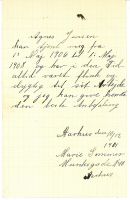 Agnes Jensen
har tjent mig fra
1ste Maj 1906 til 1ste Maj
1908 og har i den Tid
altid været flink og
dygtig til sit Arbejde
og jeg kan give hende
den bedste Anbefaling
Aarhus den 10/12
1911
Marie Sommer
Munkegade
Aarhus